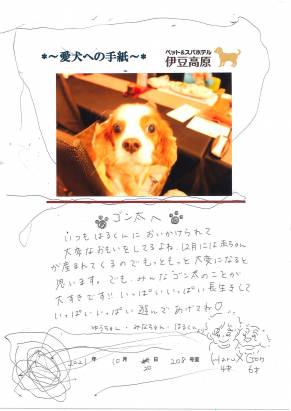 *～愛犬への手紙～*
ペット&スパホテル
伊豆高原
ゴン太へ
いつもはるくんにおいかけられて
大変なおもいをしてるよね。12月には赤ちゃん
が産まれてくるのでもっともっと大変になると
思います。でも、みんなゴン太のことが
大すきです!! いっぱいいっぱい長生きして
いっぱいいっぱい遊んであげてね♡
ゆうちゃん・みなちゃん・はるくん
2021年 10月 20 208号室
Haru × Gon
4才 6才